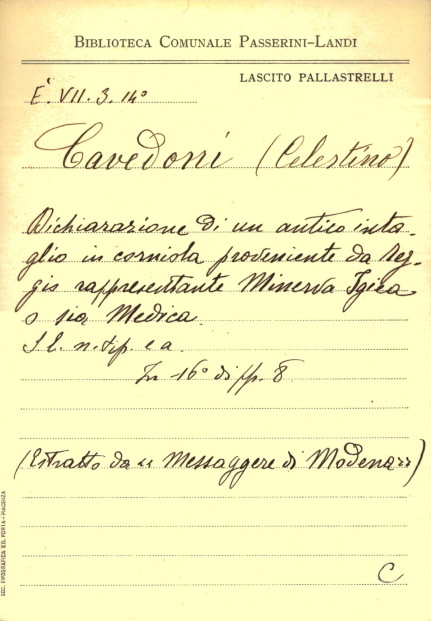 BIBLIOTECA COMUNALE PASSERINI-LANDI
LASCITO PALLASTRELLI
E. VII. 3. 14°
Cavedoni (Celestino)
Dichiarazione di un antico inta-
glio in corniola proveniente da Reg-
gio rappresentante Minerva Igiea
o sia Medica.
S. l. n. tip. e a.
In 16° di pp. 8
(Estratto da "Messaggere di Modena")
C
SOC. TIPOGRAFICA ED. PORTA - PIACENZA